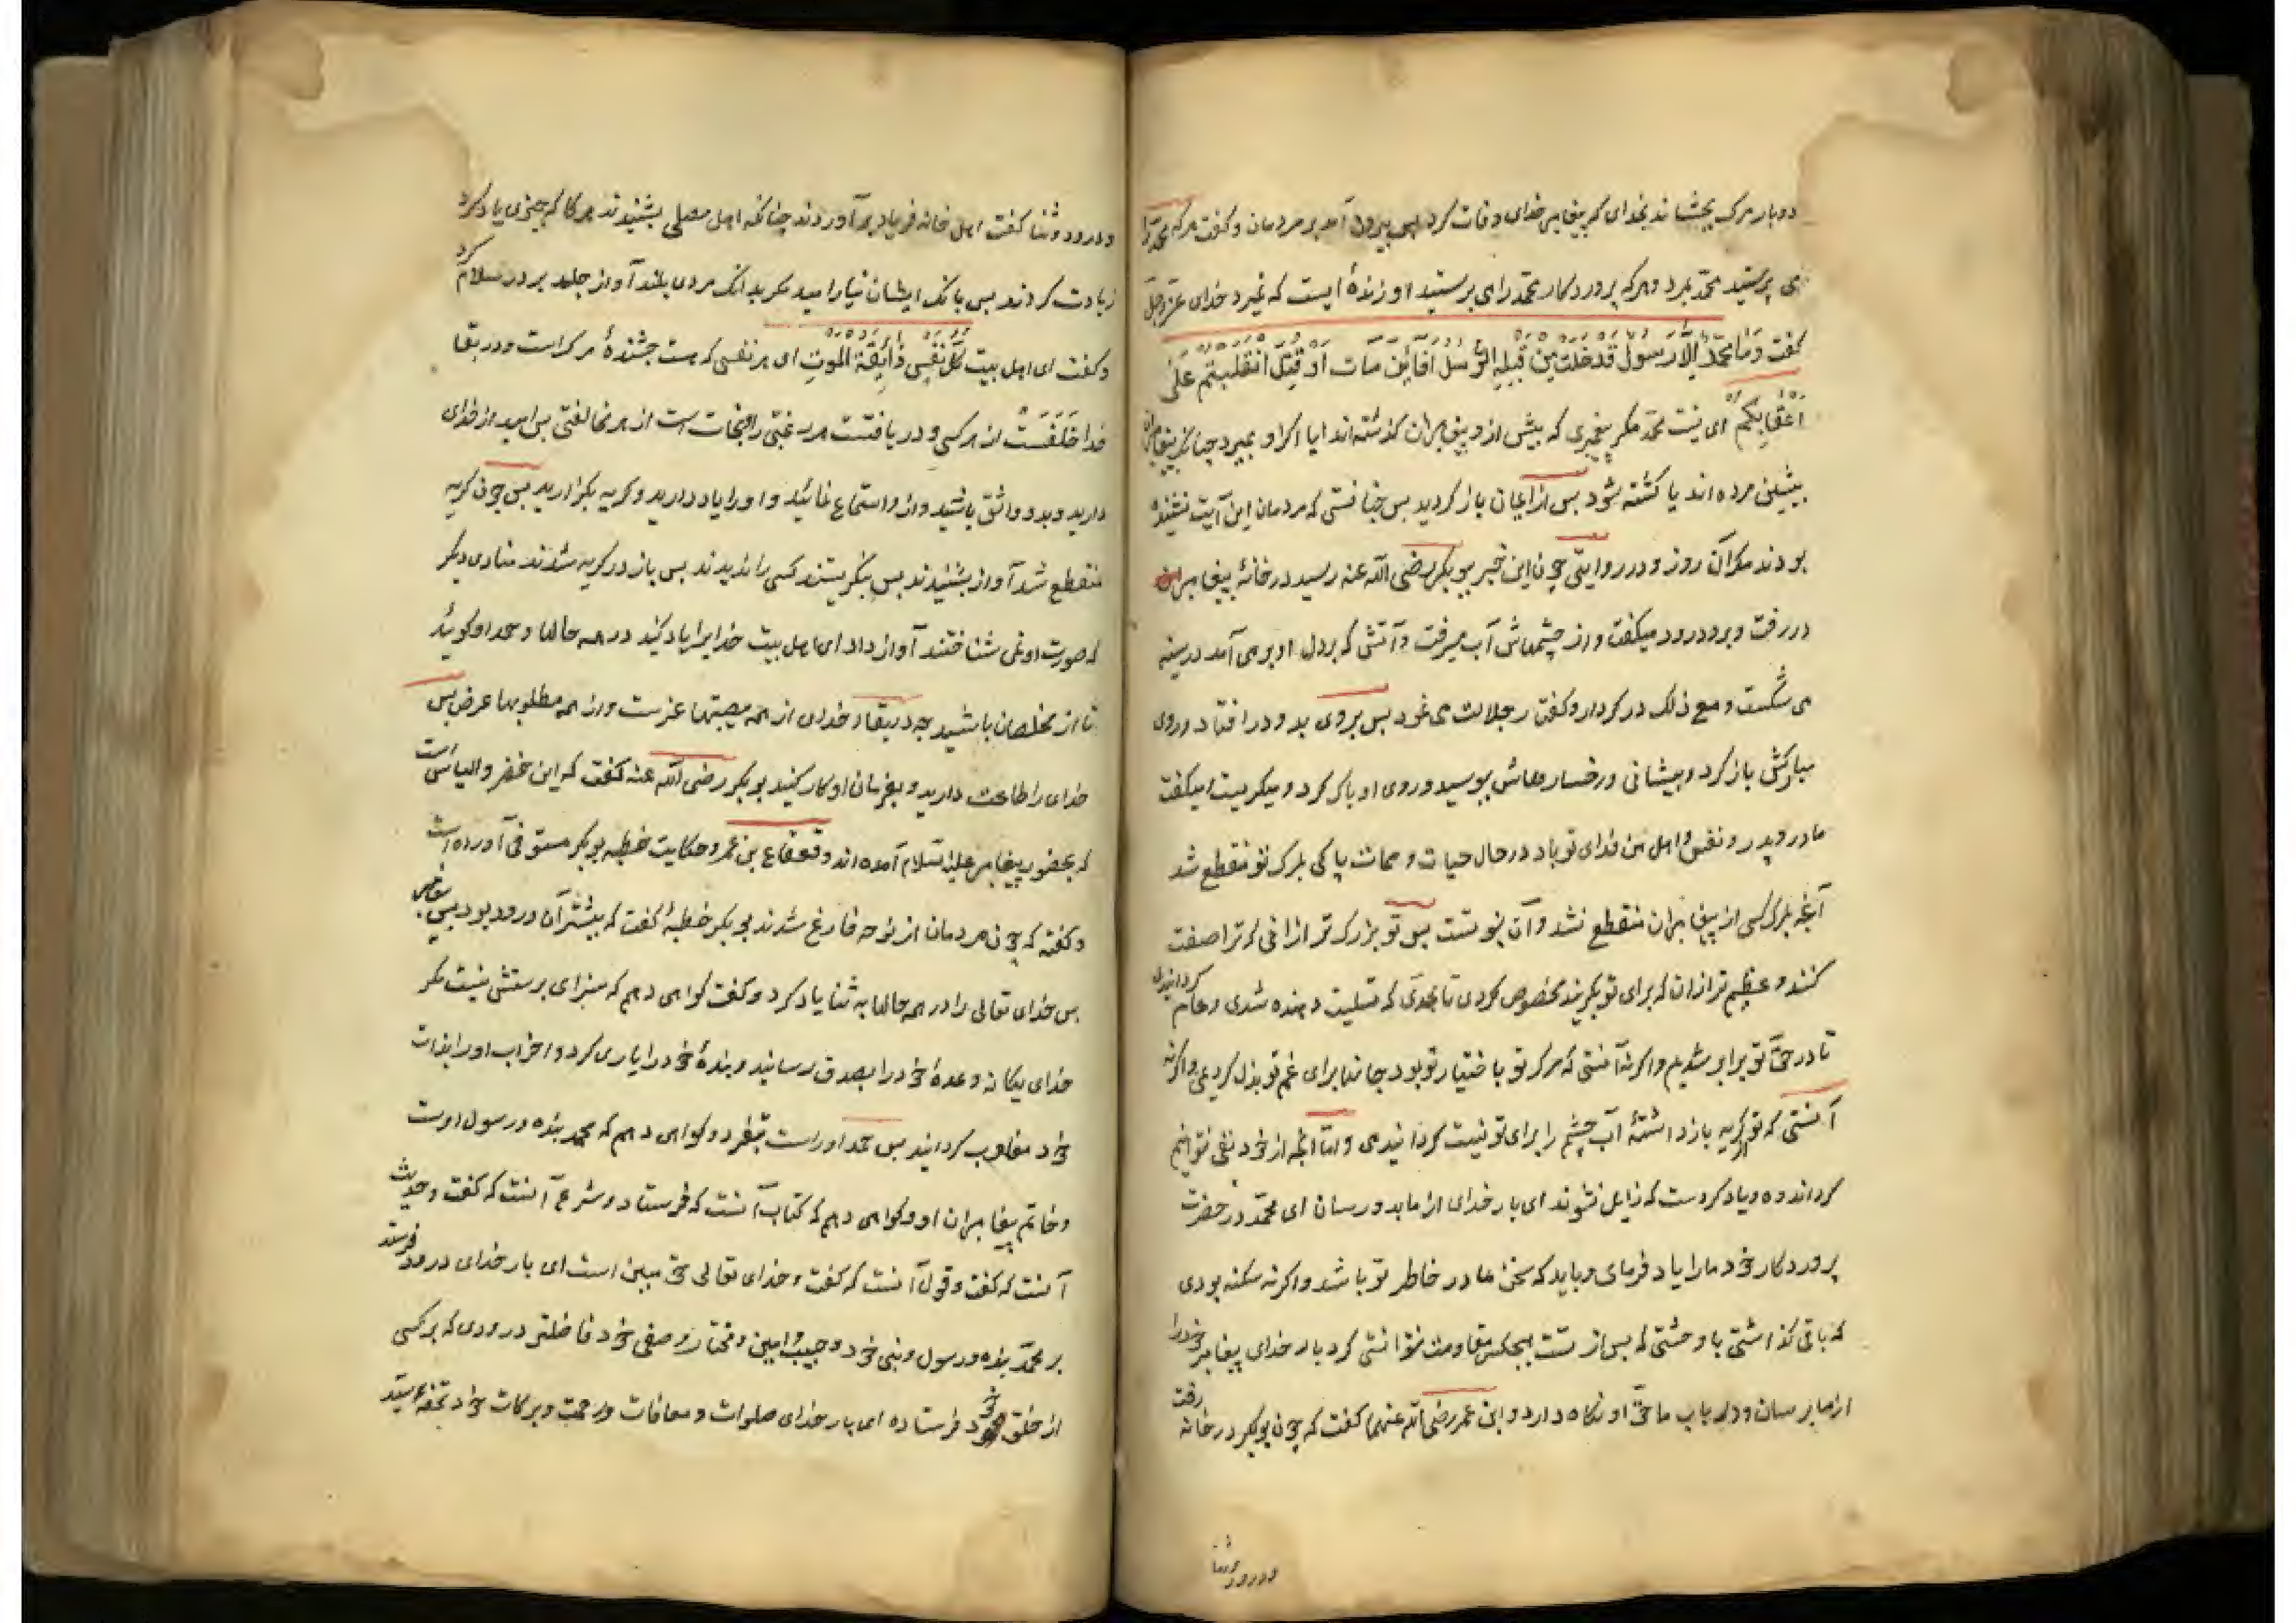 دوبار مرک بچشاند بخدای که پیغامبر خدای وفات کرد پس بیرون آمد بر مردمان و کفت هرکه محمد را
می پرستید محمد بمرد و هرکه پروردکار محمد را می پرستید او زندهٔ ایست که نمیرد خدای عز وجل
کفت وَمَا مُحَمَّدٌ اِلَّا رَسُولٌ قَدْ خَلَتْ مِن قَبْلِهِ الرُّسُلُ اَفَائِن مَاتَ اَوْ قُتِلَ انْقَلَبْتُمْ عَلٰی
اَعْقَابِکُمْ ای نیست محمد مکر پیغمبری که پیش از و پیغامبران کذشته اند ایا اکر او بمیرد چنانکه پیغامبران
پیشین مرده اند یا کشته شود پس از ایمان باز کردید پس چنانستی که مردمان این آیت نشنیده
بودند مکر آن روز و در روایتی چون این خبر ببوبکر رضی الله عنه رسید در خانهٔ پیغامبر
در رفت و برو درود میکفت و از چشمهاش آب میرفت و آتشی که بر دل او بر می آمد در سینه
می شکست و مع ذلک در کردار و کفتار جلالت می نمود پس بروی بدو در افتاد و روی
مبارکش باز کرد و پیشانی و رخسارهاش ببوسید و روی او پاک کرد و میکریست و میکفت
مادر و پدر و نفس و اهل من فدای تو باد در حال حیات و ممات پاکی بمرک تو منقطع شد
آنچه بمرک کسی از پیغامبران منقطع نشد و آن نبوتست پس تو بزرک تر ازانی که ترا صفت
کنند و عظیم تر ازان که برای تو بکریند مخصوص کردی تا بحدی که تسلیت دهنده شدی و عام کردانیدی
تا در حق تو برابر شدیم و اکر نه آنستی که مرک تو باختیار تو بود جانها برای غم تو بذل کردیمی و اکر نه
آنستی که تو از کریه باز داشتهٔ آب چشم را برای تو نیست کردانیدمی و اما آنچه از خود نفی نتوانیم
کرد اندوه و یاد کردست که زایل نشوند ای بار خدای از ما بدو رسان ای محمد در حضرت
پروردکار خود ما را یاد فرمای و باید که سخن ما در خاطر تو باشد و اکر نه سکنه بودی
که باقی کذاشتی با وحشتی که پس از تست هیچکس مقاومت نتوانستی کرد بار خدای پیغامبر خود را
از ما برسان و در باب ما حق او نکاه دارد و ابن عمر رضی الله عنهما کفت که چون بوبکر در خانه رفت
و درود و ثنا
و درود و ثنا کفت اهل خانه فریاد بر آوردند چنانکه اهل مصلی بشنیدند هرکا که چیزی یاد کرد
زیادت کردند پس بانک ایشان نیارامید مکر بدانک مردی بلند آواز جلد بر در سلام کرد
و کفت ای اهل بیت کُلُّ نَفْسٍ ذَائِقَةُ الْمَوْتِ ای هر نفسی که هست چشندهٔ مرکست و در بقا
خدا خَلَفَست از هر کسی و دریافتست هر رغبتی را و نجات است از هر مخالفتی پس امید از خدای
دارید و بدو واثق باشید و از و استماع نمائید و او را یاد دارید و کریه بکزارید پس چون کریه
منقطع شد آواز بشنیدند پس بنکریستند کسی را ندیدند پس باز در کریه شدند منادی دیکر
که صورت او نمی شناختند آواز داد ای اهل بیت خدایرا یاد کنید در همه حالها و حمد او کوئید
تا از مخلصان باشید چه در بقاء خدای از همه مصیبتها عزست و از همه مطلوبها عوض پس
خدای را طاعت دارید و بفرمان او کار کنید بوبکر رضی الله عنه کفت که این خضر و الیاس است
که بحضور پیغامبر علیه السلام آمده اند و قعقاع بن عمرو حکایت خطبه بوبکر مستوفی آورده است
و کفته که چون مردمان از نوحه فارغ شدند بوبکر خطبهٔ کفت که بیشتر آن درود بود بر پیغامبر
پس خدای تعالی را در همه حالها به ثنا یاد کرد و کفت کواهی دهم که سزای پرستش نیست مکر
خدای یکانه وعدهٔ خود را بصدق رسانید و بندهٔ خود را یاری کرد و احزاب او را بذات
خود مغلوب کردانید پس حمد او راست بتفرد و کواهی دهم که محمد بنده و رسول اوست
و خاتم پیغامبران او و کواهی دهم که کتاب آنست که فرستاد و شرع آنست که کفت و حدیث
آنست که کفت و قول آنست که کفت و خدای تعالی حق مبین است ای بار خدای درود فرست
بر محمد بنده و رسول و نبی خود و حبیب و امین و مختار و صفی خود فاضلتر درودی که بر کسی
از خلق خود فرستاده ای بار خدای صلوات و معافات و رحمت و برکات خود تحفهٔ سید